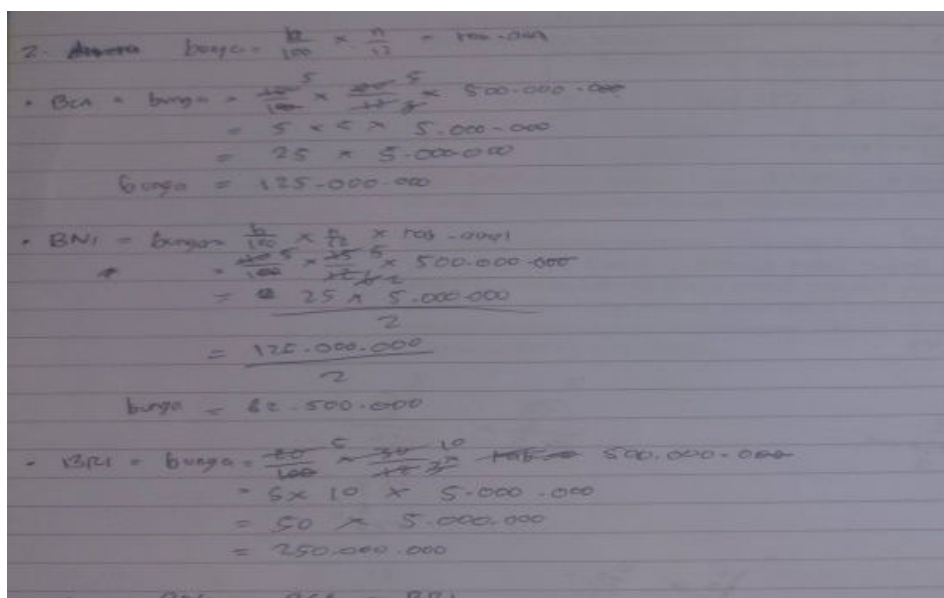 2. bunga = b/100 × n/12 ×
• BCA = bunga = /100 5 × /12 5 × 500.000.000
= 5 × 5 × 5.000.000
= 25 × 5.000.000
bunga = 125.000.000
• BNI = bunga = b/100 × n/12 ×
= /100 5 × 15/12 5 2 × 500.000.000
= 25 × 5.000.000
2
= 125.000.000
2
bunga = 62.500.000
• BRI = bunga = 20/100 5 × 30/12 10 × 500.000.000
= 5 × 10 × 5.000.000
= 50 × 5.000.000
= 250.000.000
BRI